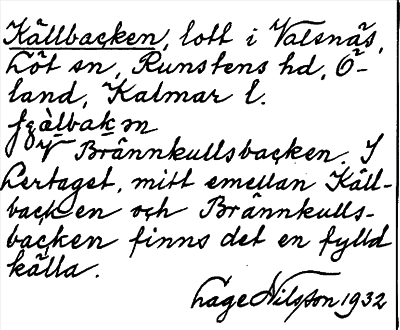 Källbacken, lott i Valsnäs,
Löt sn, Runstens hd, Ö-
land, Kalmar l.
V Brännkullsbacken. I
Lertaget, mitt emellan Käll-
backen och Brännkulls-
backen finns det en fylld
källa.
Lage Nilsson 1932